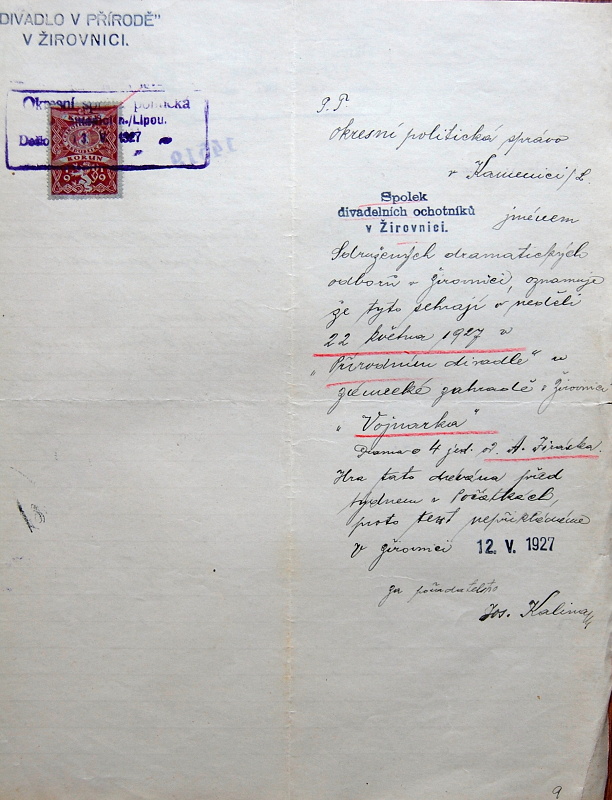 DIVADLO V PŘÍRODĚ"
V ŽIROVNICI.
Okresní správa politická
n./Lipou.
Došlo V 1927
KORUN
14519
P. T
okresní politická správo
v Kamenici/L.
Spolek
divadelních ochotníků
v Žirovnici.
jménem
Sdružených dramatických
odborů v Žirovnici, oznamuje
že tyto sehrají v neděli
22 května 1927 v
„Přírodním divadle" v
zámecké zahradě v Žirovnici
„Vojnarka"
Drama o 4 jed. od A. Jiráska.
Hra tato dávána před
týdnem v Počátkách,
proto text nepřikládáme
V Žirovnici 12. V. 1927
za pořadatelstvo
Jos. Kalina
9